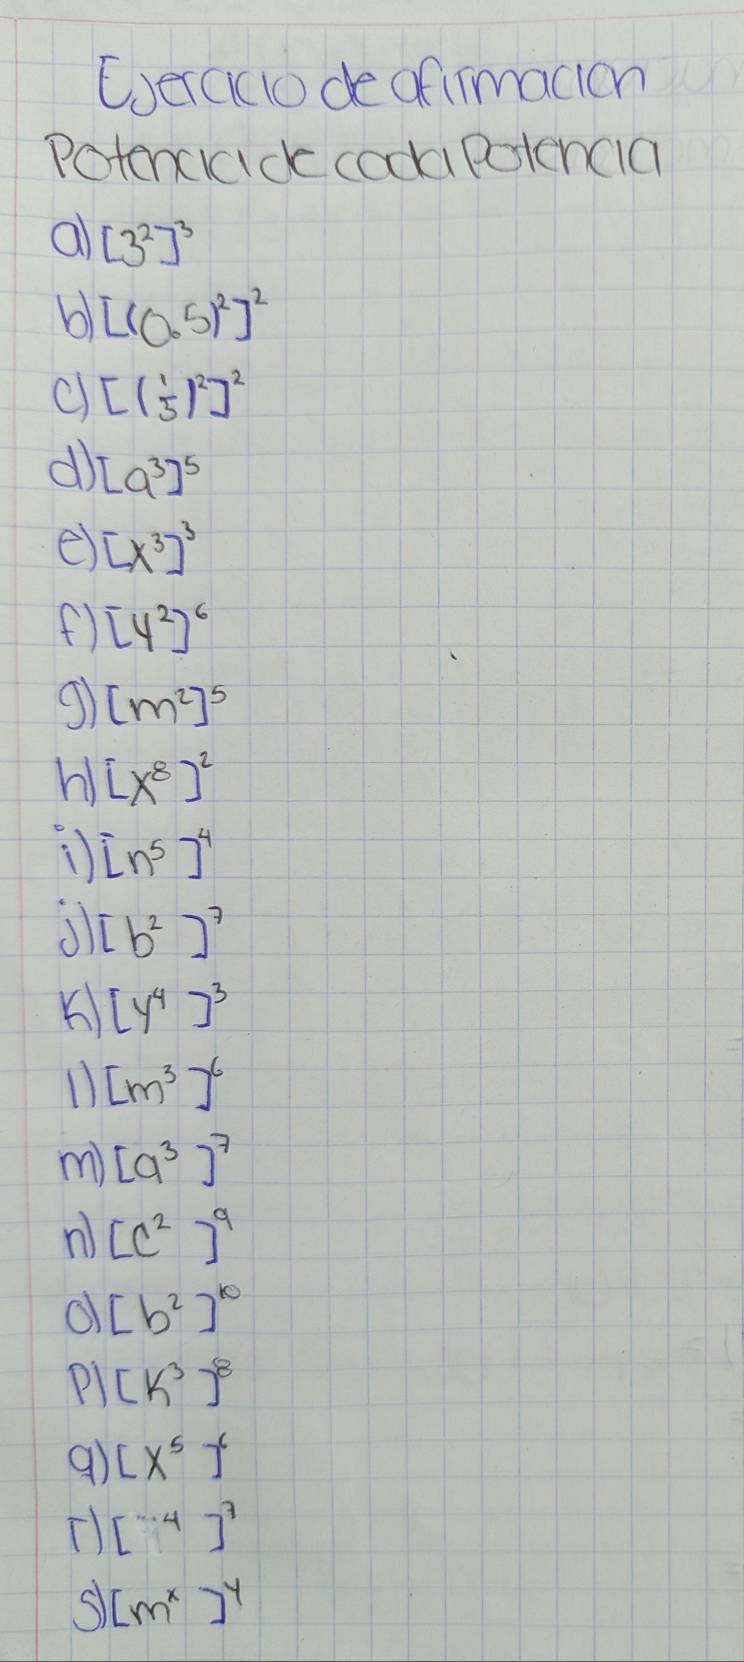 Ejercicio de afirmacion
Potencia de cada Potencia
a) [3²]³
b) [(0.5)²]²
c) [(1/5)²]²
d) [a³]⁵
e) [x³]³
f) [y²]⁶
g) [m²]⁵
h) [x⁸]²
i) [n⁵]⁴
j) [b²]⁷
k) [y⁴]³
l) [m³]⁶
m) [a³]⁷
n) [c²]⁹
o) [b²]¹⁰
p) [k³]⁸
q) [x⁵]⁶
r) [ ⁴]⁷
s) [mˣ]ʸ